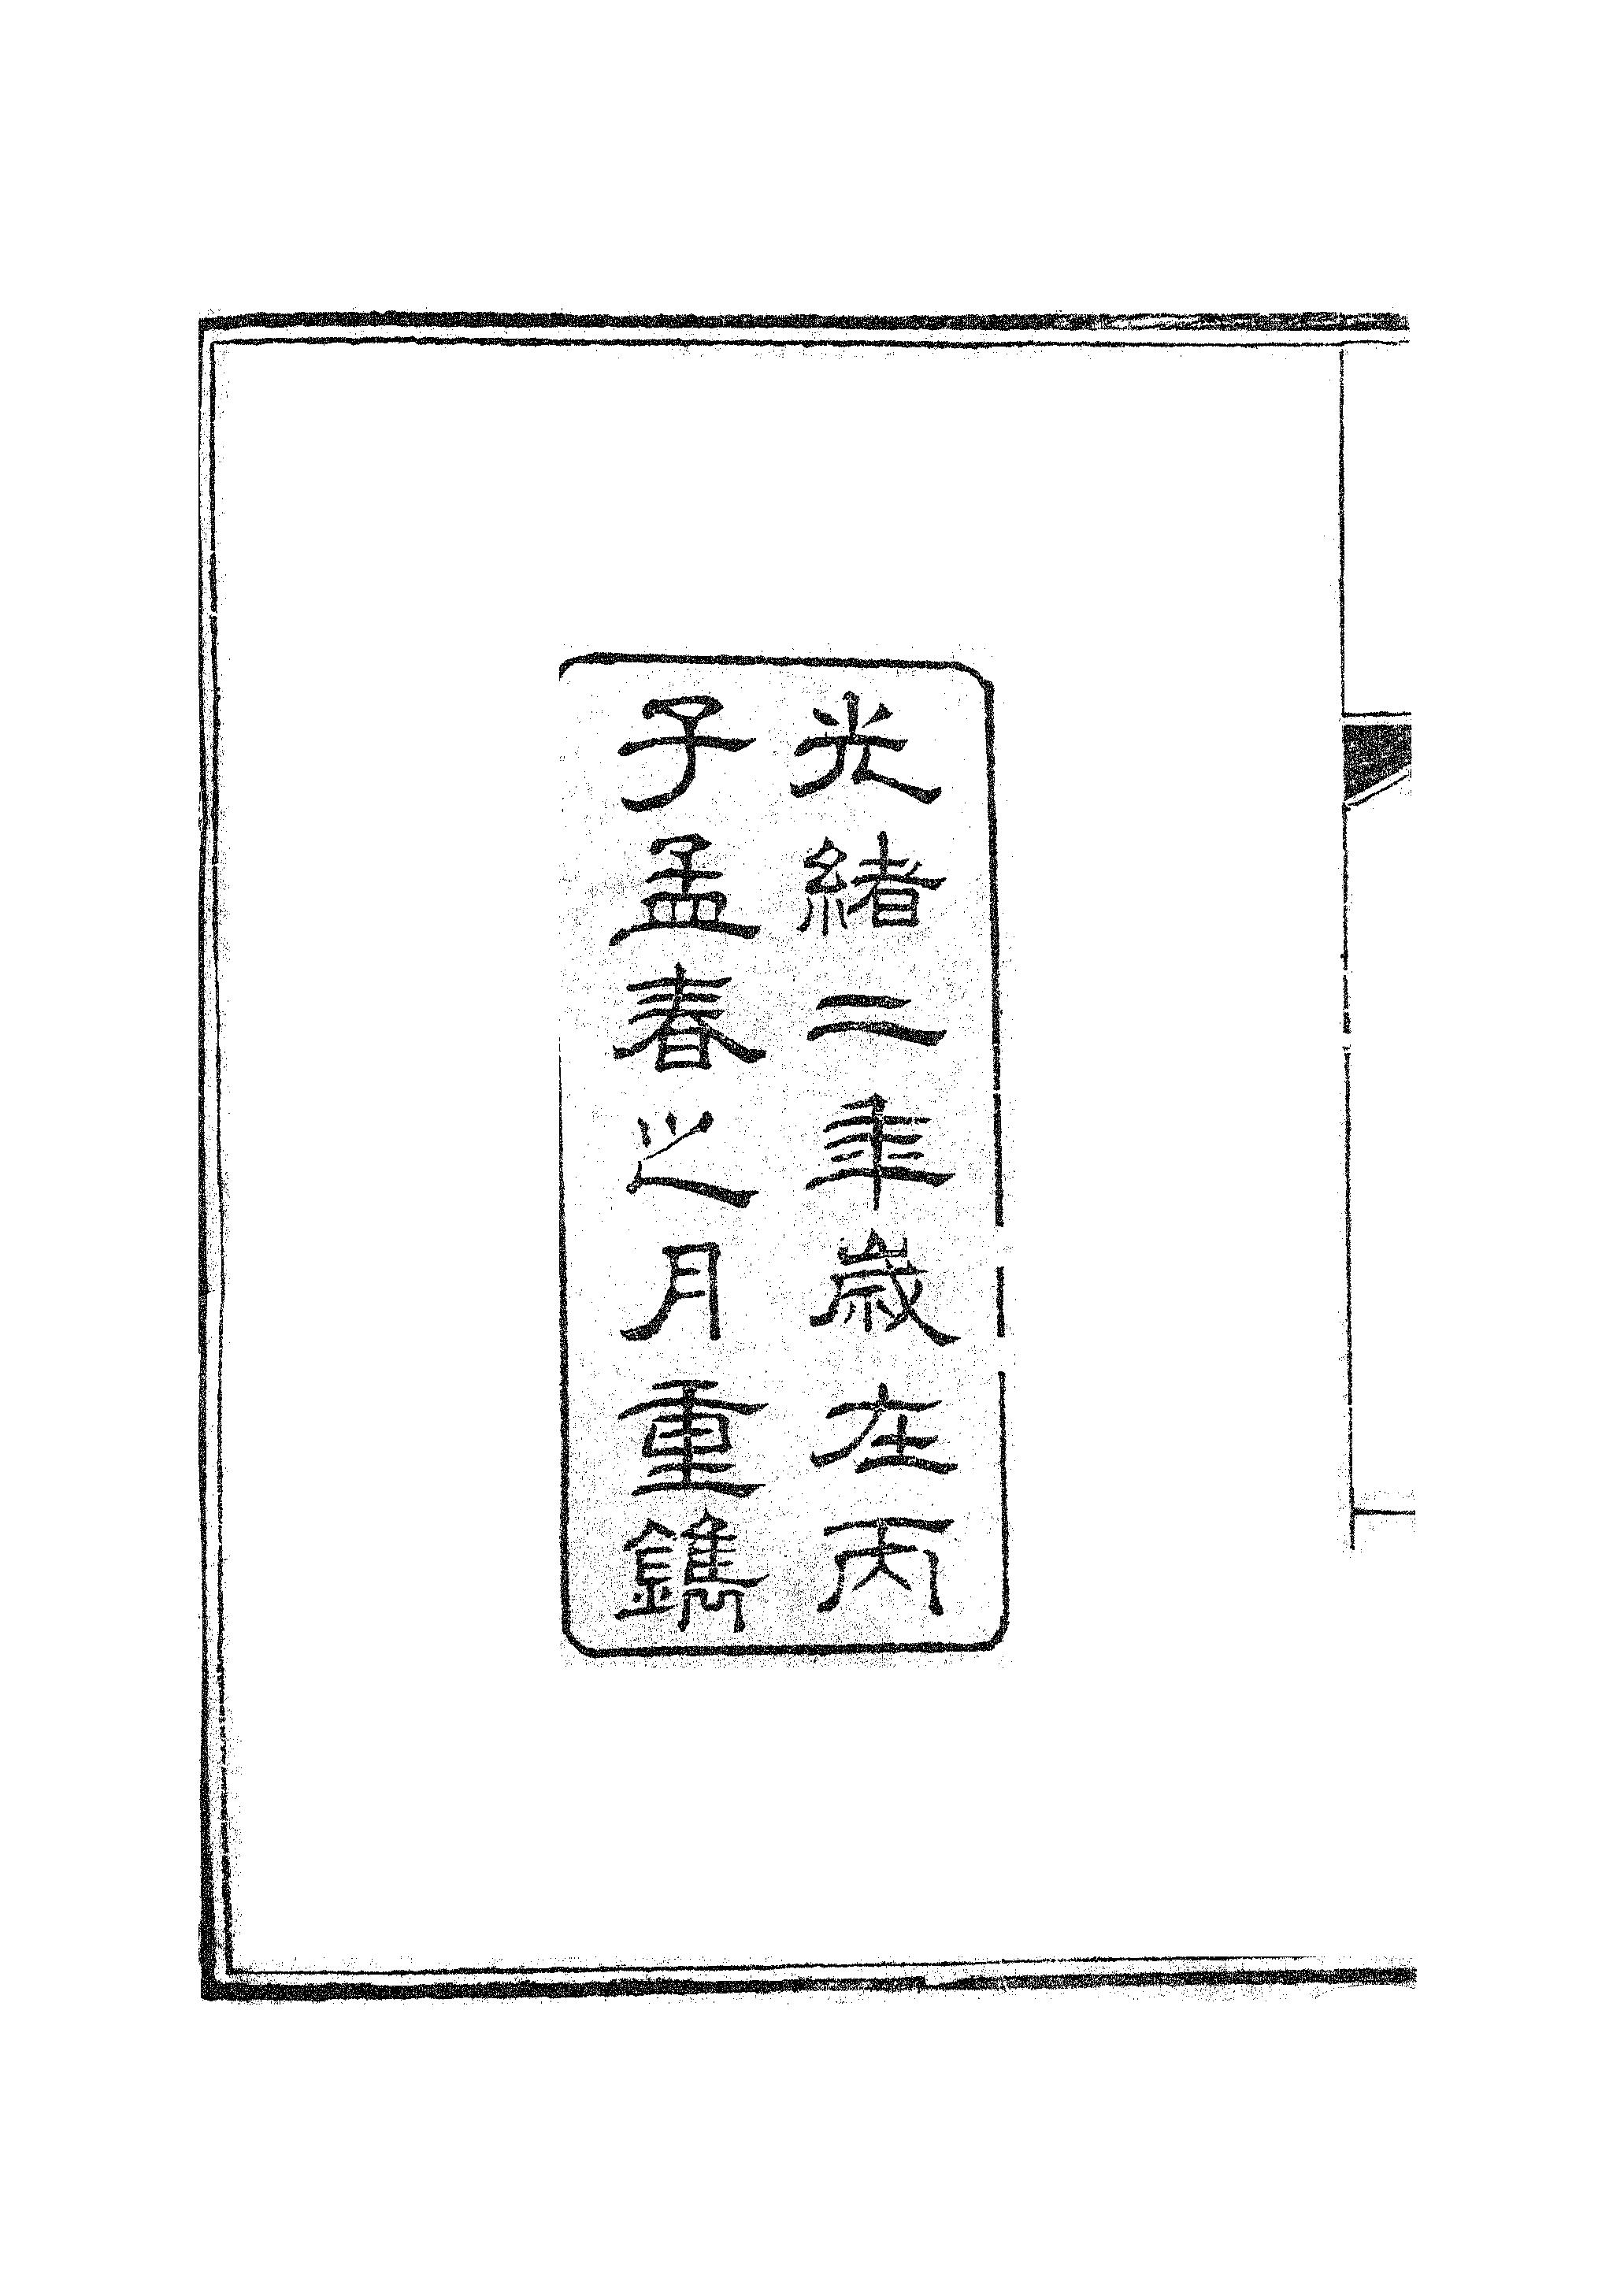 光緒二年歲在丙
子孟春之月重鐫